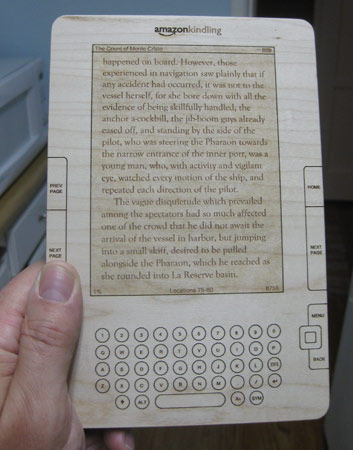 amazonkindling
The Count of Monte Cristo
happened on board. However, those
experienced in navigation saw plainly that if
any accident had occurred, it was not to the
vessel herself, for she bore down with all the
evidence of being skillfully handled, the
anchor a-cockbill, the jib-boom guys already
eased off, and standing by the side of the
pilot, who was steering the Pharaon towards
the narrow entrance of the inner port, was a
young man, who, with activity and vigilant
eye, watched every motion of the ship, and
repeated each direction of the pilot.
The vague disquietude which prevailed
among the spectators had so much affected
one of the crowd that he did not await the
arrival of the vessel in harbor, but jumping
into a small skiff, desired to be pulled
alongside the Pharaon, which he reached as
she rounded into La Reserve basin.
1% Locations 75-80
PREV
PAGE
NEXT
PAGE
HOME
NEXT
PAGE
MENU
BACK
1 2 3 4 5 6 7 8 9 0
Q W E R T Y U I O P
A S D F G H J K L DEL
Z X C V B N M . 
ALT Aa SYM